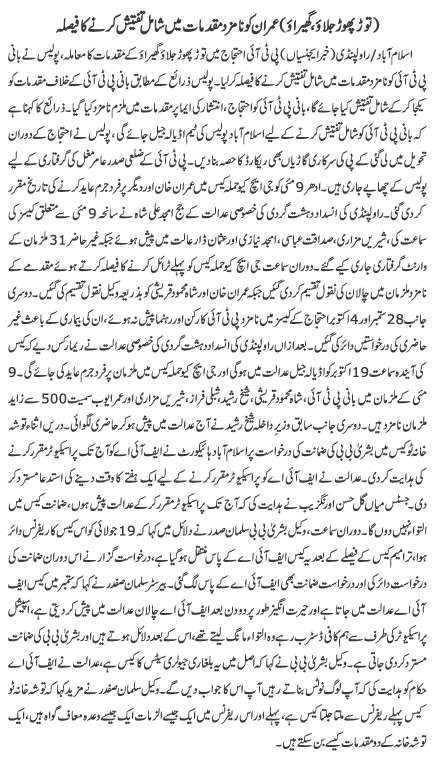 (توڑ پھوڑ جلاؤ گھیراؤ) عمران کو نامزد مقدمات میں شامل تفتیش کرنے کا فیصلہ
اسلام آباد/ راولپنڈی (خبر ایجنسیاں) پی ٹی آئی احتجاج میں توڑ پھوڑ جلاؤ گھیراؤ کے مقدمات کا معاملہ، پولیس نے بانی
پی ٹی آئی کو نامزد مقدمات میں شامل تفتیش کرنے کا فیصلہ کرلیا۔ پولیس ذرائع کے مطابق بانی پی ٹی آئی کے خلاف مقدمات کو
یکجا کر کے شامل تفتیش کیا جائے گا، بانی پی ٹی آئی کو احتجاج، انتشار کی ایما پر مقدمات میں ملزم نامزد کیا گیا۔ ذرائع کا کہنا ہے
کہ بانی پی ٹی آئی کو شامل تفتیش کرنے کے لیے اسلام آباد پولیس کی ٹیم اڈیالہ جیل جائے گی، پولیس نے احتجاج کے دوران
تحویل میں لی گئی کے پی کی سرکاری گاڑیاں بھی ریکارڈ کا حصہ بنا دیں۔ پی ٹی آئی کے ضلعی صدر عامر مغل کی گرفتاری کے لیے
پولیس کے چھاپے جاری ہیں۔ ادھر 9 مئی کو جی ایچ کیو حملہ کیس میں عمران خان اور دیگر پر فرد جرم عاید کرنے کی تاریخ مقرر
کر دی گئی۔ راولپنڈی کی انسداد دہشت گردی کی خصوصی عدالت کے جج امجد علی شاہ نے سانحہ 9 مئی سے متعلق کیسوں
کی سماعت کی، شیریں مزاری، صداقت عباسی، امجد نیازی اور عثمان ڈار عدالت میں پیش ہوئے جبکہ غیر حاضر 31 ملزمان کے
وارنٹ گرفتاری جاری کیے گئے۔ دوران سماعت جی ایچ کیو حملہ کیس کو پہلے ٹرائل کرنے کا فیصلہ کرتے ہوئے مقدمے کے
نامزد ملزمان میں چالان کی نقول تقسیم کر دی گئیں جبکہ عمران خان اور شاہ محمود قریشی کو بذریعہ وکیل نقول تقسیم کی گئیں۔ دوسری
جانب 28 ستمبر اور 4 اکتوبر احتجاج کے کیسز میں نامزد پی ٹی آئی کارکن اور رہنما پیش نہ ہوئے، ان کی بیماری کے باعث غیر
حاضری کی درخواستیں دائر کی گئیں۔ بعد ازاں راولپنڈی کی انسداد دہشت گردی کی خصوصی عدالت نے ریمارکس دیے کیس
کی آیندہ سماعت 19 اکتوبر کو اڈیالہ جیل عدالت میں ہو گی اور جی ایچ کیو حملہ کیس میں ملزمان پر فرد جرم عاید کی جائے گی۔ 9
مئی کے ملزمان میں بانی پی ٹی آئی، شاہ محمود قریشی، شیخ رشید، شبلی فراز، شیریں مزاری اور عمر ایوب سمیت 500 سے زاید
ملزمان نامزد ہیں۔ دوسری جانب سابق وزیر داخلہ شیخ رشید نے آج عدالت میں پیش ہو کر حاضری لگوائی۔ دریں اثنا، توشہ
خانہ ٹو کیس میں بشریٰ بی بی کی ضمانت کی درخواست پر اسلام آباد ہائیکورٹ نے ایف آئی اے کو آج تک پراسیکیوٹر مقرر کرنے
کی ہدایت کر دی۔ عدالت نے ایف آئی اے کو پراسیکیوٹر مقرر کرنے کے لیے ایک ہفتے کا وقت دینے کی استدعا مسترد کر
دی۔ جسٹس میاں گل حسن اورنگزیب نے ہدایت کی کہ آج تک پراسیکیوٹر مقرر کر کے عدالت پیش ہوں، ضمانت کیس میں
التوا نہیں دوں گا۔ دوران سماعت، وکیل بشریٰ بی بی سلمان صفدر نے دلائل میں کہا کہ 19 جولائی کو اس کیس کا ریفرنس دائر
ہوا، ترامیم کیس کے فیصلے کے بعد یہ کیس ایف آئی اے کے پاس منتقل ہو گیا ہے، درخواست گزار نے اس دوران ضمانت کی
درخواست دائر کی اور درخواست ضمانت بھی ایف آئی اے کے پاس لگ گئی۔ بیرسٹر سلمان صفدر نے کہا کہ ستمبر میں کیس ایف
آئی اے عدالت میں جاتا ہے اور حیرت انگیز طور پر دو دن بعد ایف آئی اے چالان عدالت میں پیش کر دیتی ہے، اسپیشل
پراسیکیوٹر کی طرف سے ہم کافی ڈسٹرب رہے وہ التواء مانگ لیتے تھے، اس کے بعد دلائل ہوتے ہیں اور بشریٰ بی بی کی ضمانت
مسترد کر دی جاتی ہے۔ وکیل بشریٰ بی بی نے کہا کہ اصل میں یہ بلغاری جیولری سیٹس کا کیس ہے، عدالت نے ایف آئی اے
حکام کو ہدایت کی کہ آپ لوگ نوٹس بناتے رہیں آپ اس کا جواب دیں گے۔ وکیل سلمان صفدر نے مزید کہا کہ توشہ خانہ ٹو
کیس پہلے ریفرنس سے ملتا جلتا کیس ہے، پہلے اور اس ریفرنس میں ایک جیسے الزمات ایک جیسے وعدہ معاف گواہ ہیں، ایک
توشہ خانہ کے دو مقدمات کیسے بن سکتے ہیں۔